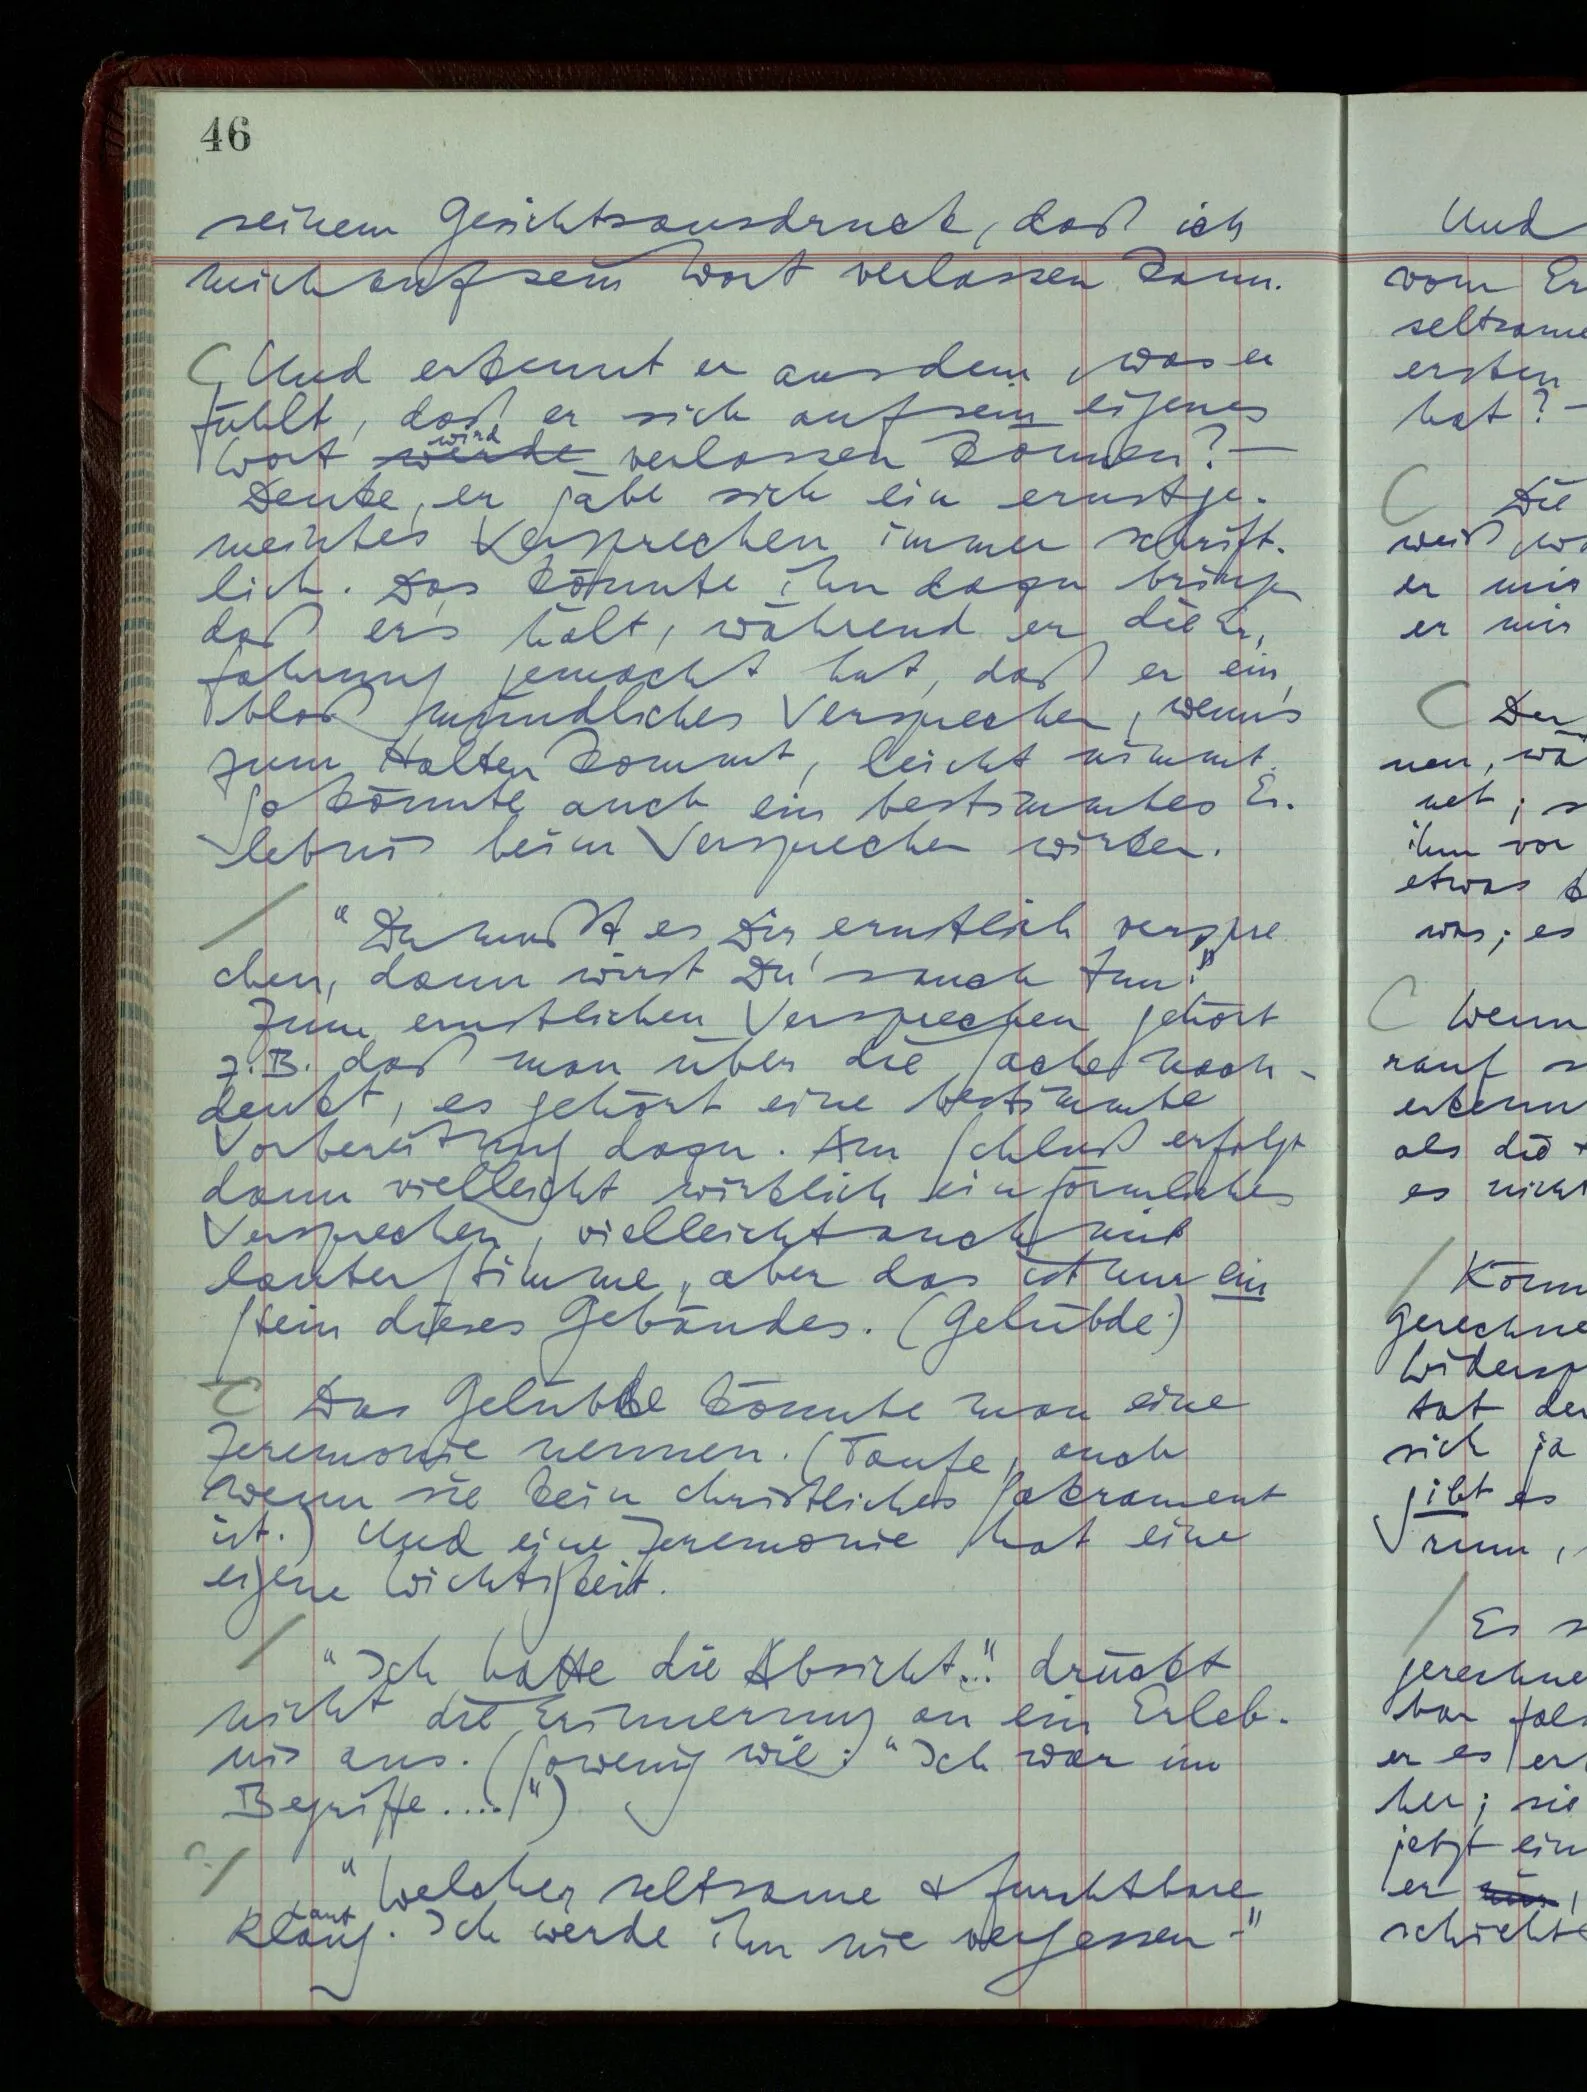 46
seinem Gesichtsausdruck, daß ich
mich auf sein Wort verlassen kann.
C Und erkennt er aus dem, was er
fühlt, daß er sich auf sein eigenes
wird
Wort werde verlassen können? —
Denke, er gäbe sich ein ernstge-
meintes Versprechen immer schrift-
lich. Das könnte ihn dazu bringen
daß ers hält, während er die Er-
fahrung gemacht hat, daß er ein
bloß mündliches Versprechen, wenn's
zum Halten kommt, leicht nimmt.
So könnte auch ein bestimmtes Er-
lebnis beim Versprechen wirken.
/ "Du mußt es Dir ernstlich verspre
chen, dann wirst Du's auch tun."
Zum ernstlichen Versprechen gehört
z.B. daß man über die Sache nach-
denkt, es gehört eine bestimmte
Vorbereitung dazu. Am Schluß erfolgt
dann vielleicht wirklich ein förmliches
Versprechen, vielleicht auch mit
lauter Stimme, aber das ist nur ein
Stein dieses Gebäudes. (Gelübde)
C Das Gelübde könnte man eine
Zeremonie nennen. (Taufe, auch
wenn sie kein christliches Sakrament
ist.) Und eine Zeremonie hat eine
eigene Wichtigkeit.
/ "Ich hatte die Absicht..." drückt
nicht die Erinnerung an ein Erleb-
nis aus. (Sowenig wie: "Ich war im
Begriffe....")
? / "Welcher seltsame & furchtbare
aut
Klang. Ich werde ihn nie vergessen-"
Und
vom Er
seltsame
ersten
hat? -
C Die
weiß, wa
er mir
er mir
C Der
nen, wä
net; s
ihm vor
etwas k
was; es
C Wenn
rauf s
erkenn
als die
es nicht
/ Könn
gerechne
Widersp
tat der
sich ja
gibt es
rum,
/ Es s
gerechne
bar fals
er es er
her; sie
jetzt ein
er
schichte